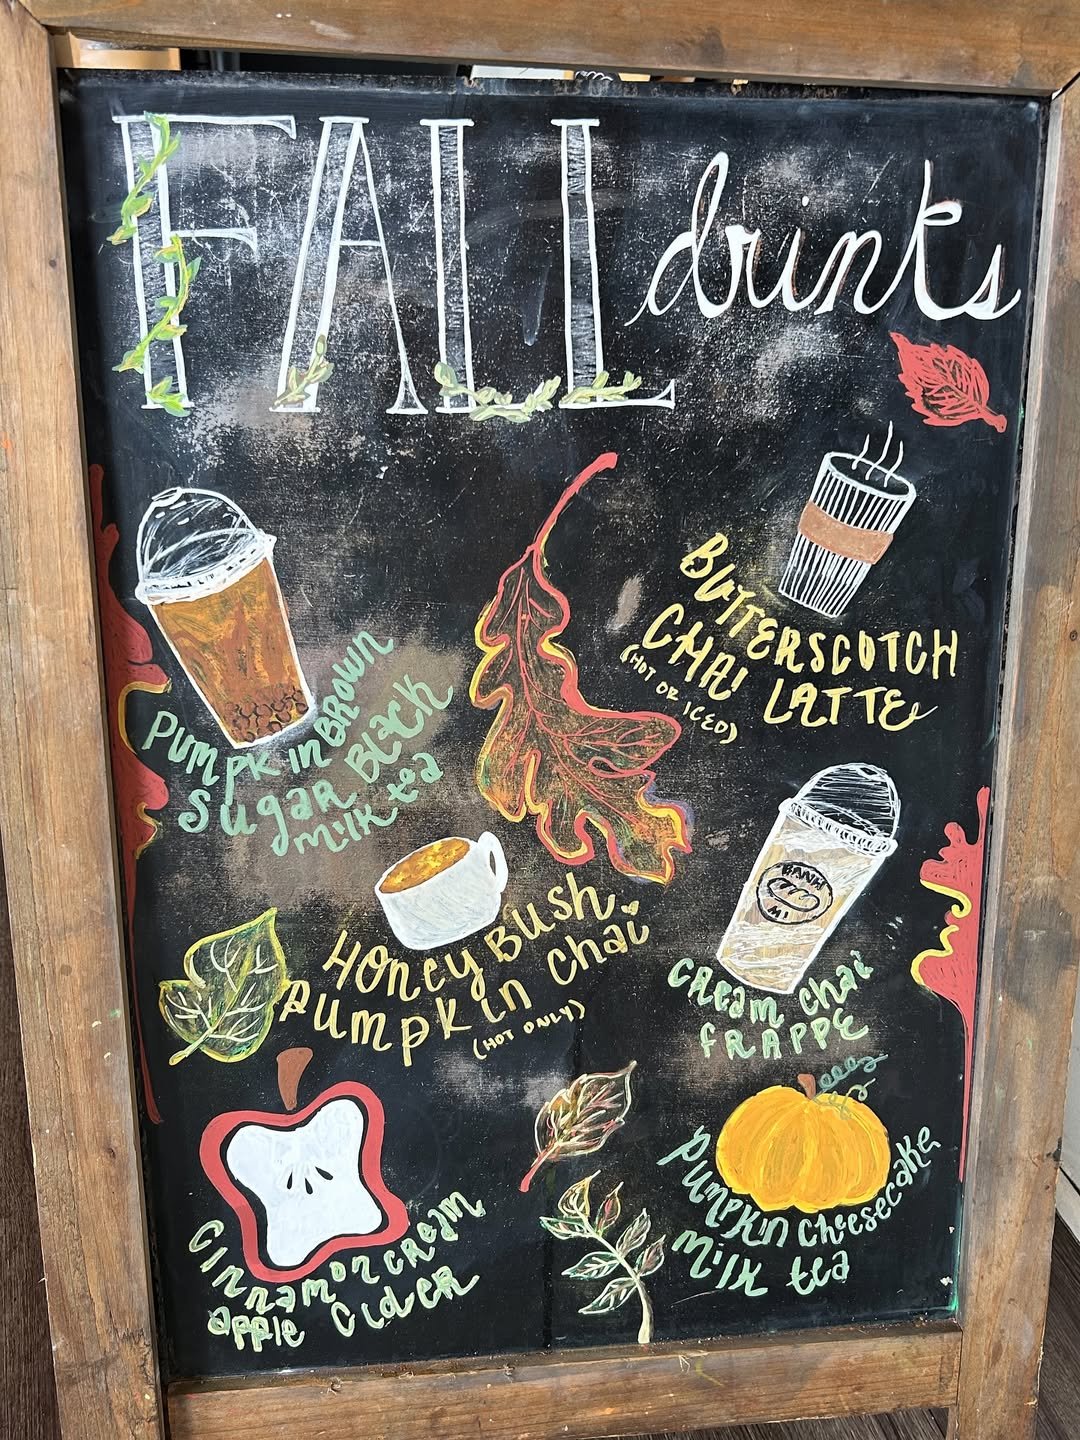 FALL drinks
BUTTERSCOTCH
CHAI LATTE
(HOT OR ICED)
PumpkinBROWN
SugaR Black
milk tea
BANH
MI
HOney Bush
pumpkin chai
(HOT ONLY)
CReam chai
FRAPPE
Cinnamon cReam
apple CideR
PumPKin cheesecake
milk tea